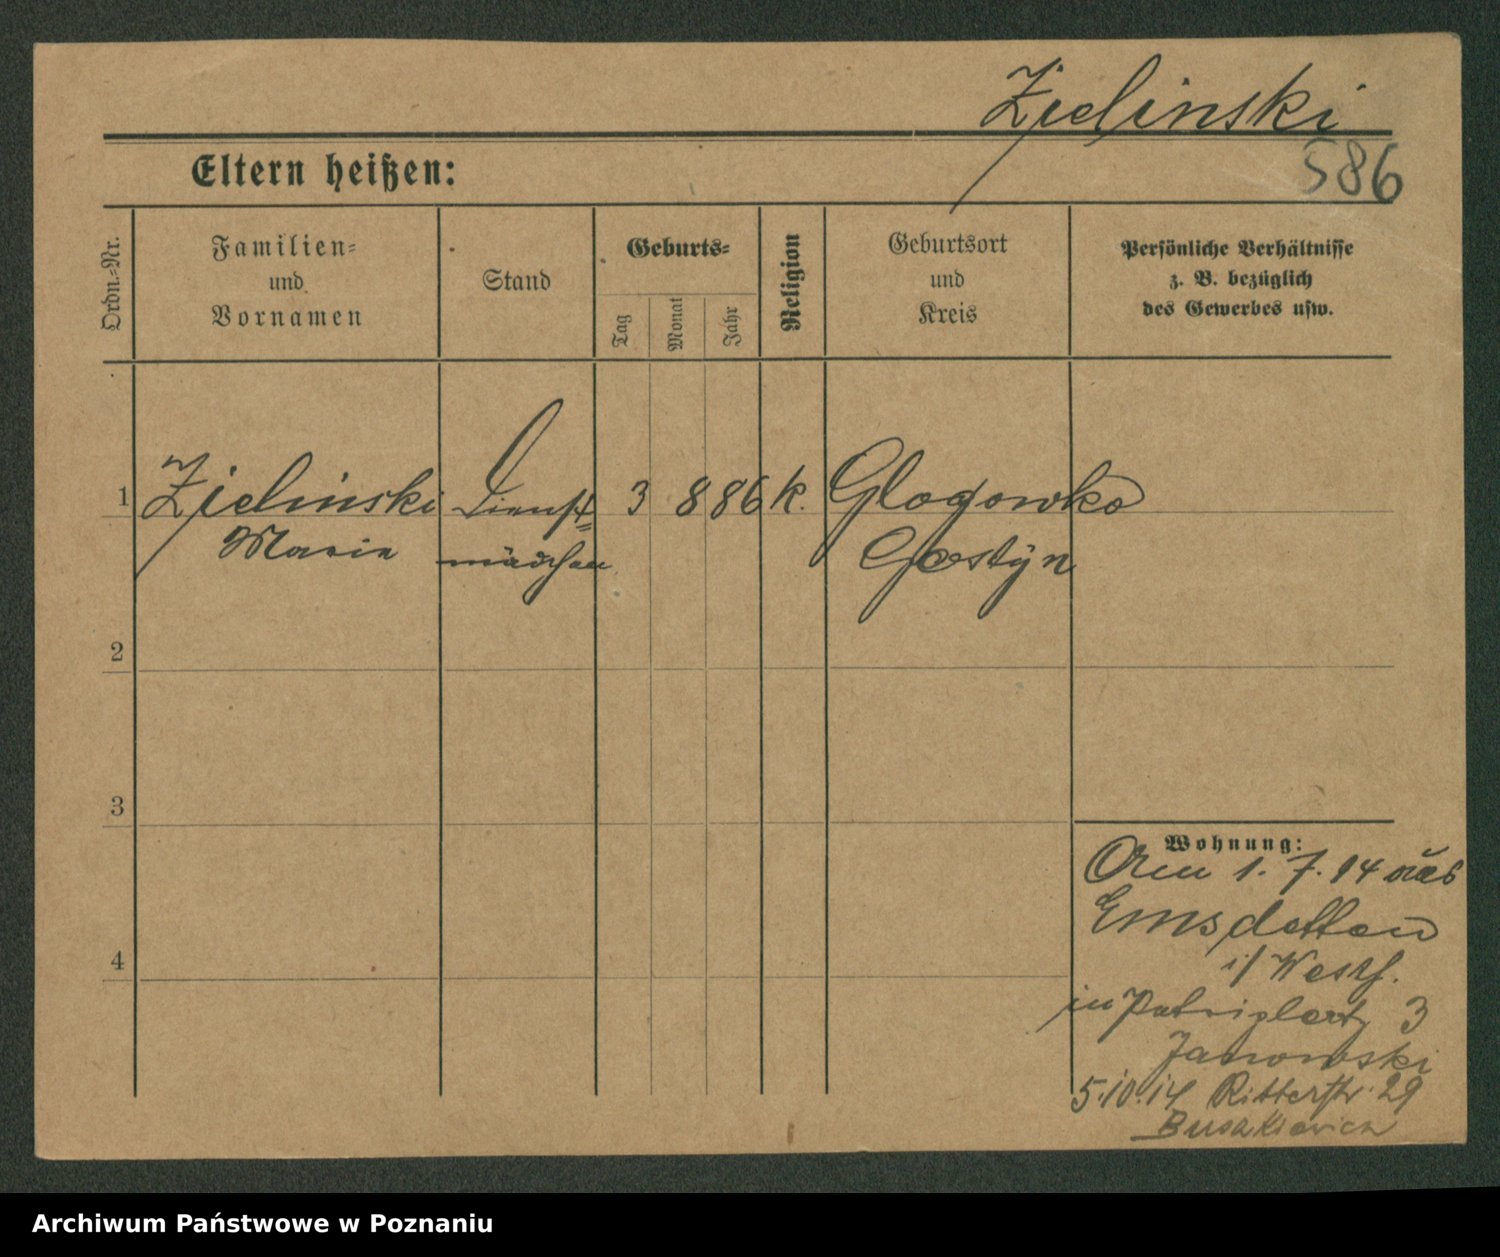 Zielinski
586
Eltern heißen:
Ordn.=Nr.
Familien=
und
Vornamen
Stand
Geburts=
Tag
Monat
Jahr
Religion
Geburtsort
und
Kreis
Persönliche Verhältnisse
z. B. bezüglich
des Gewerbes usw.
1 Zielinski Dienst= 3 8 86 k. Glogowko
Marie mädchen Gostÿn
2
3
4
Wohnung:
1. 7. 14 aus
Emsdetten
i/ Westf.
in 3
Janowski
5.10.14 Ritterstr. 29
Archiwum Państwowe w Poznaniu